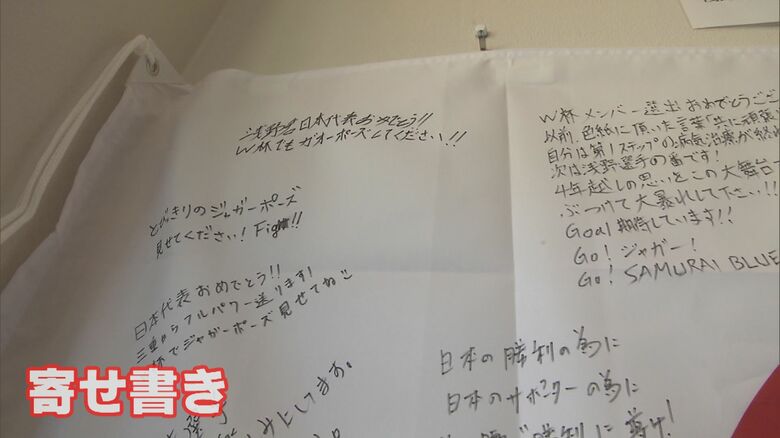 浅野君日本代表おめでとう!!
W杯でもガオーポーズしてください!!
とびきりのジャガーポーズ
見せてください! Fight!!
日本代表おめでとう!!
三重からフルパワー送ります!
杯でジャガーポーズ見せてね
みにしてます。
W杯メンバー選出おめでとうござ
以前、色紙に頂いた言葉「共に頑張
自分は第1ステップの病気治療が終
次は浅野選手の番です!
4年越しの思いをこの大舞台
ぶつけて大暴れして下さい!!
Goal期待しています!!
Go! ジャガー!
Go! SAMURAI BLUE
日本の勝利の為に
日本のサポーターの為に
勝利に導け!
寄せ書き